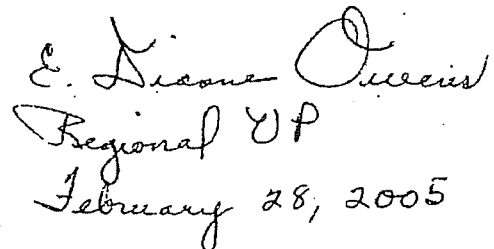 E. Diane Owens
Regional VP
February 28, 2005